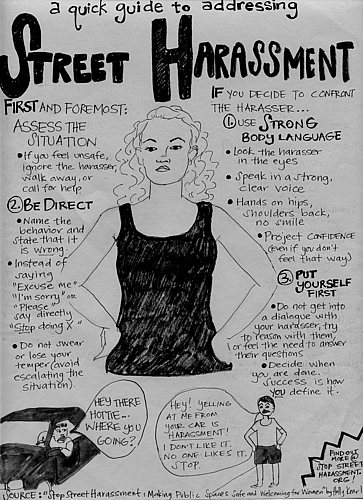 a quick guide to addressing
STREET HARASSMENT
FIRST AND FOREMOST:
ASSESS THE
SITUATION
• If you feel unsafe,
ignore the harasser,
walk away, or
call for help
2. BE DIRECT
• Name the
behavior and
state that it
is wrong.
• Instead of
saying
"Excuse me"
"I'm sorry" or
"Please"
say directly
"Stop doing X"
• Do not swear
or lose your
temper (avoid
escalating the
situation).
IF YOU DECIDE TO CONFRONT
THE HARASSER...
1. USE STRONG
BODY LANGUAGE
• Look the harasser
in the eyes
• Speak in a strong,
clear voice
• Hands on hips,
shoulders back,
no smile
• Project CONFIDENCE
(even if you don't
feel that way)
3. PUT
YOURSELF
FIRST
• Do not get into
a dialogue with
your harasser, try
to reason with them,
or feel the need to answer
their questions
• Decide when
you are done.
success is how
you define it.
HEY THERE
HOTTIE...
WHERE YOU
GOING?
HEY! YELLING
AT ME FROM
YOUR CAR IS
HARASSMENT!
I DON'T LIKE IT.
NO ONE LIKES IT.
STOP.
FIND OUT
MORE @
STOP STREET
HARASSMENT.
ORG
SOURCE: "Stop Street Harassment: Making Public Spaces Safe and Welcoming for Women" by